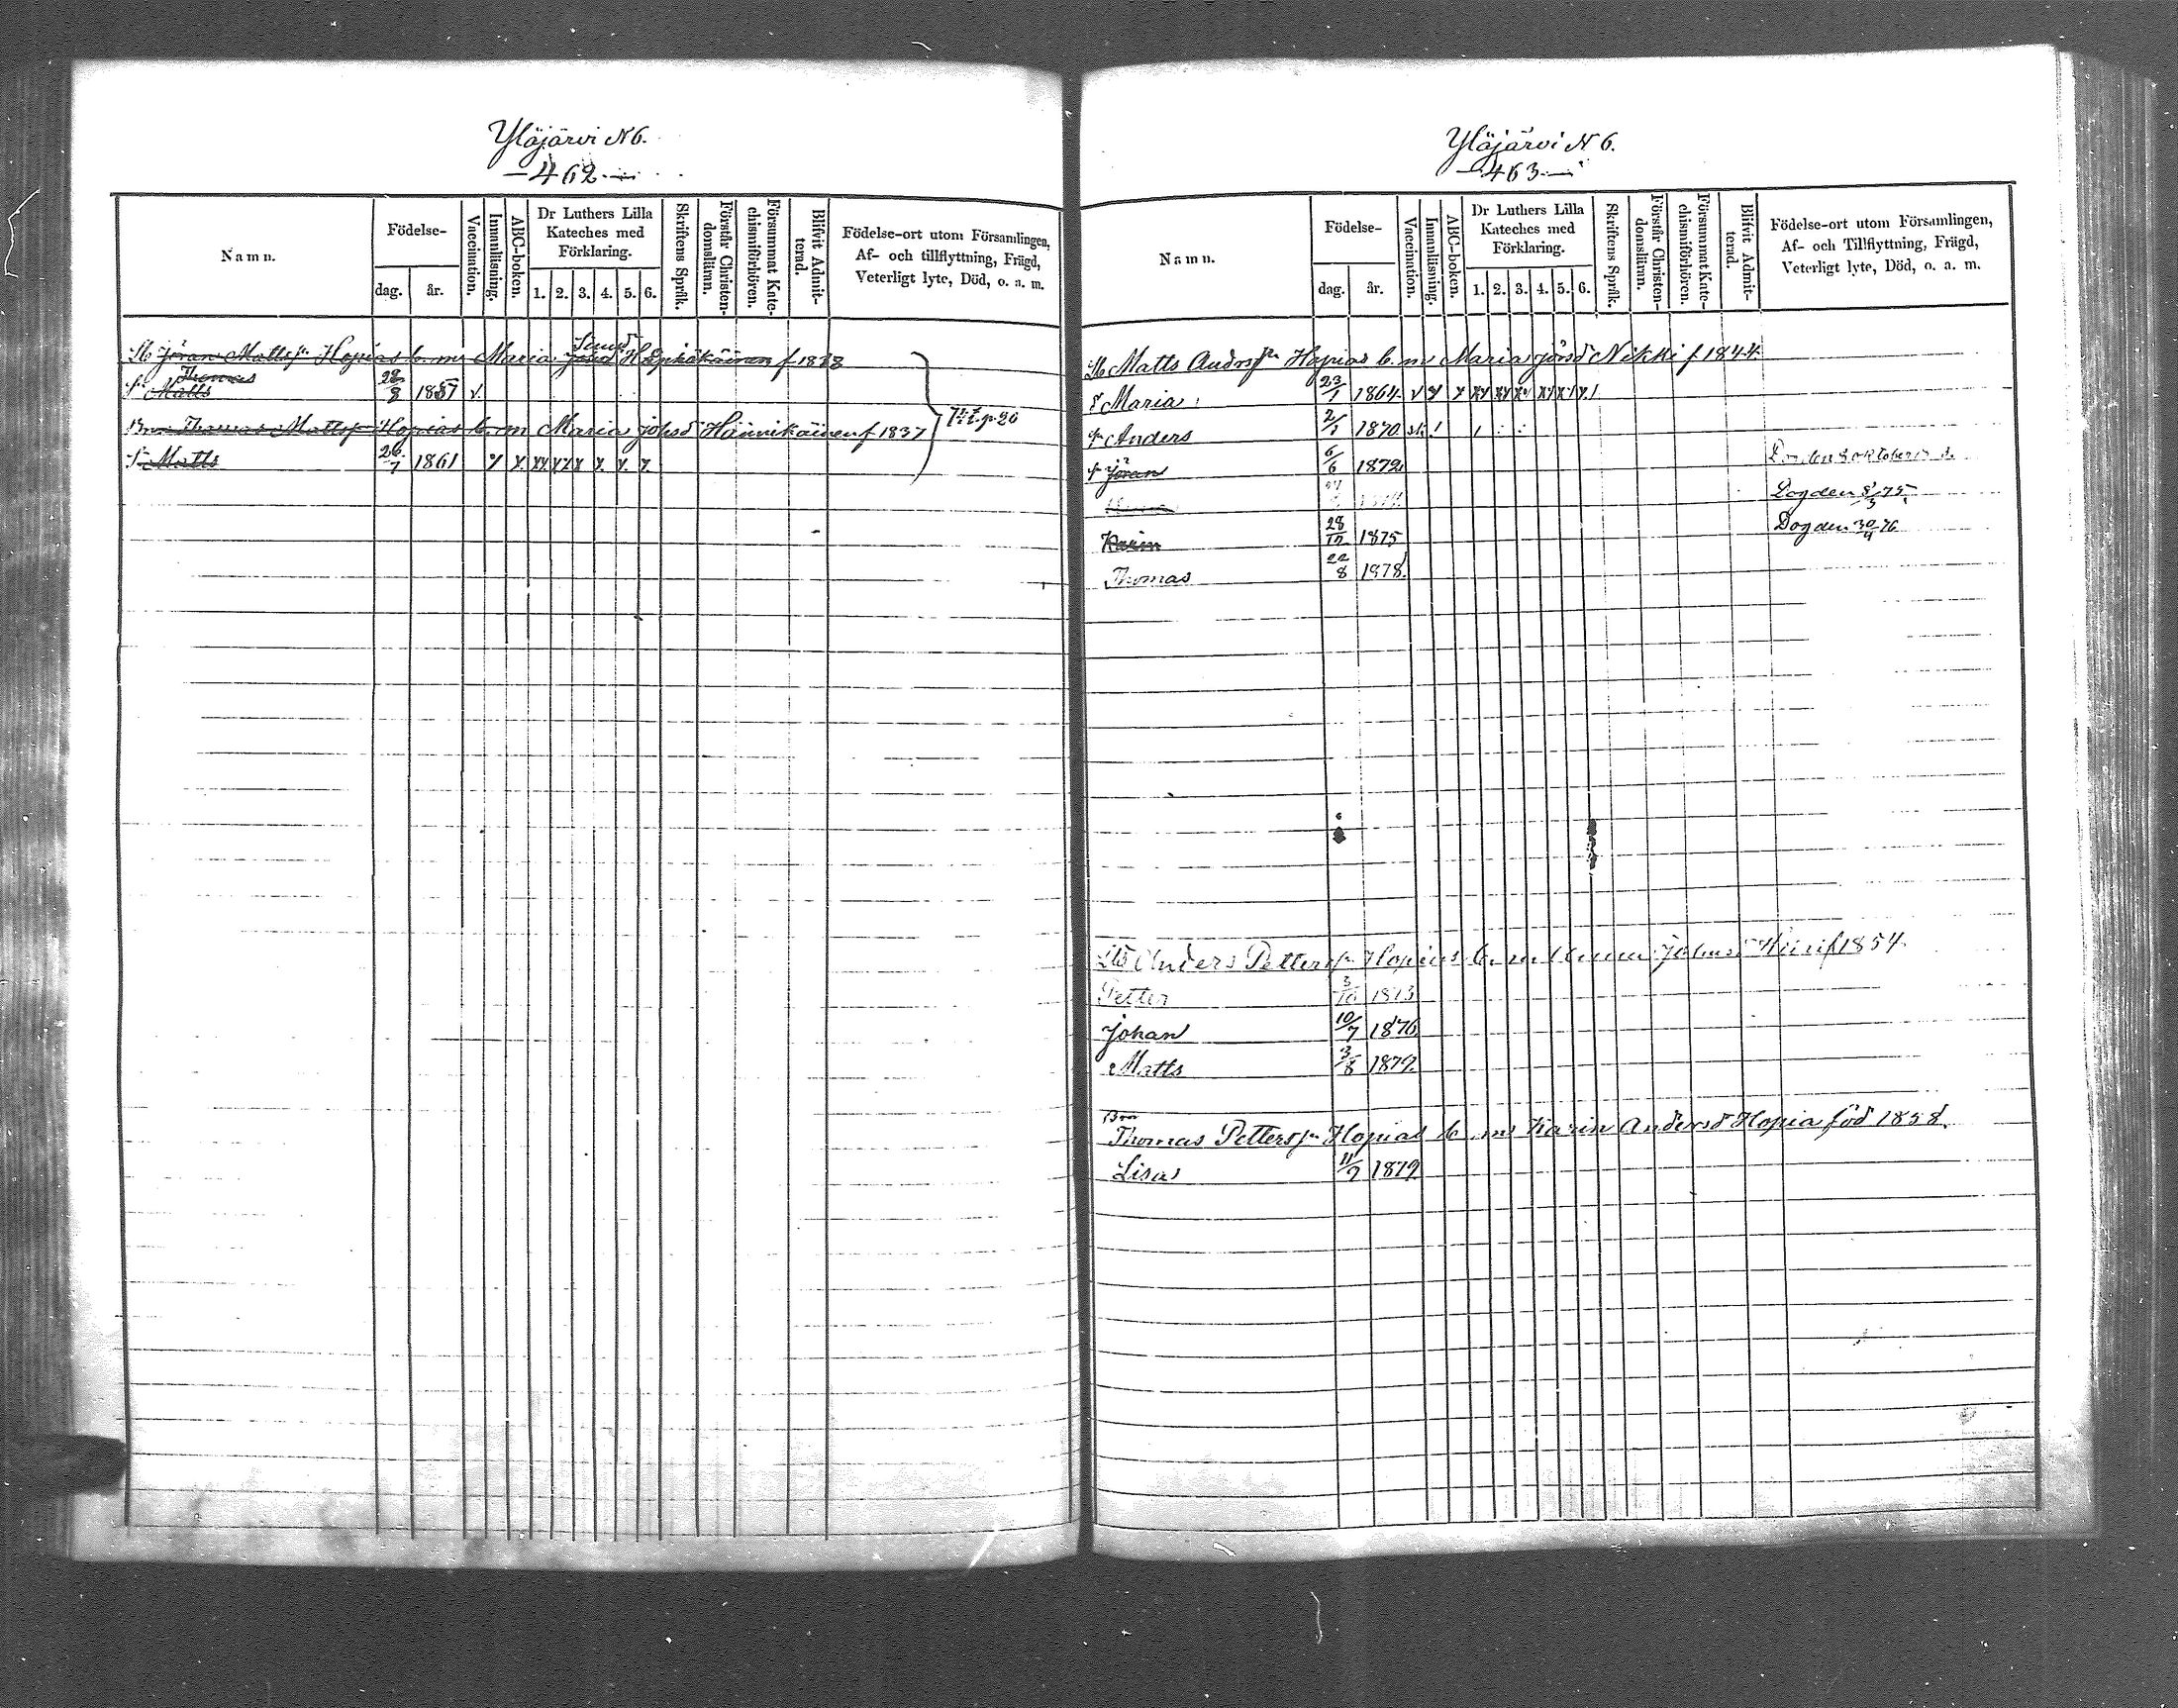 Yläjärvi N 6.
- 462 -
Namn.
Födelse-
dag.
år.
Vaccination.
Innanläsning.
ABC-boken.
Dr Luthers Lilla Kateches med Förklaring.
1. 2. 3. 4. 5. 6.
Skriftens Språk.
Förstår Christendomsläran.
Försummat Katechismiförhören.
Blifvit Admitterad.
Födelse-ort utom Församlingen, Af- och tillflyttning, Frägd, Veterligt lyte, Död, o. a. m.
Jöran Mattss Hopias b. m. Maria f 1838
Thomas
S Matts 28/8 1857 v.
Bror Thomas Mattss Hopias b. m Maria Johsd Hännikäinen f 1837
S Matts 26/1 1861
p. 20
Yläjärvi N 6.
- 463 -
Namn.
Födelse-
dag.
år.
Vaccination.
Innanläsning.
ABC-boken.
Dr Luthers Lilla Kateches med Förklaring.
1. 2. 3. 4. 5. 6.
Skriftens Språk.
Förstår Christendomsläran.
Försummat Katechismiförhören.
Blifvit Admitterad.
Födelse-ort utom Församlingen, Af- och Tillflyttning, Frägd, Veterligt lyte, Död, o. a. m.
Matts Andrss Hopias b. m Maria Jörsd Nikki f 1844.
Maria 23/1 1864
Anders 2/1 1870
Jöran 6/6 1872
Dog den 8/3 75
Karin 28/12 1875 Dog den 30/4 76
Thomas 22/8 1878
Anders Petterss Hopias b. m f 1854
Petter 3/10 1873
Johan 10/7 1876
Matts 3/8 1879
Bror
Thomas Petterss Hopias b m Karin Andersd Hopia föd 1858.
Lisa 11/9 1879